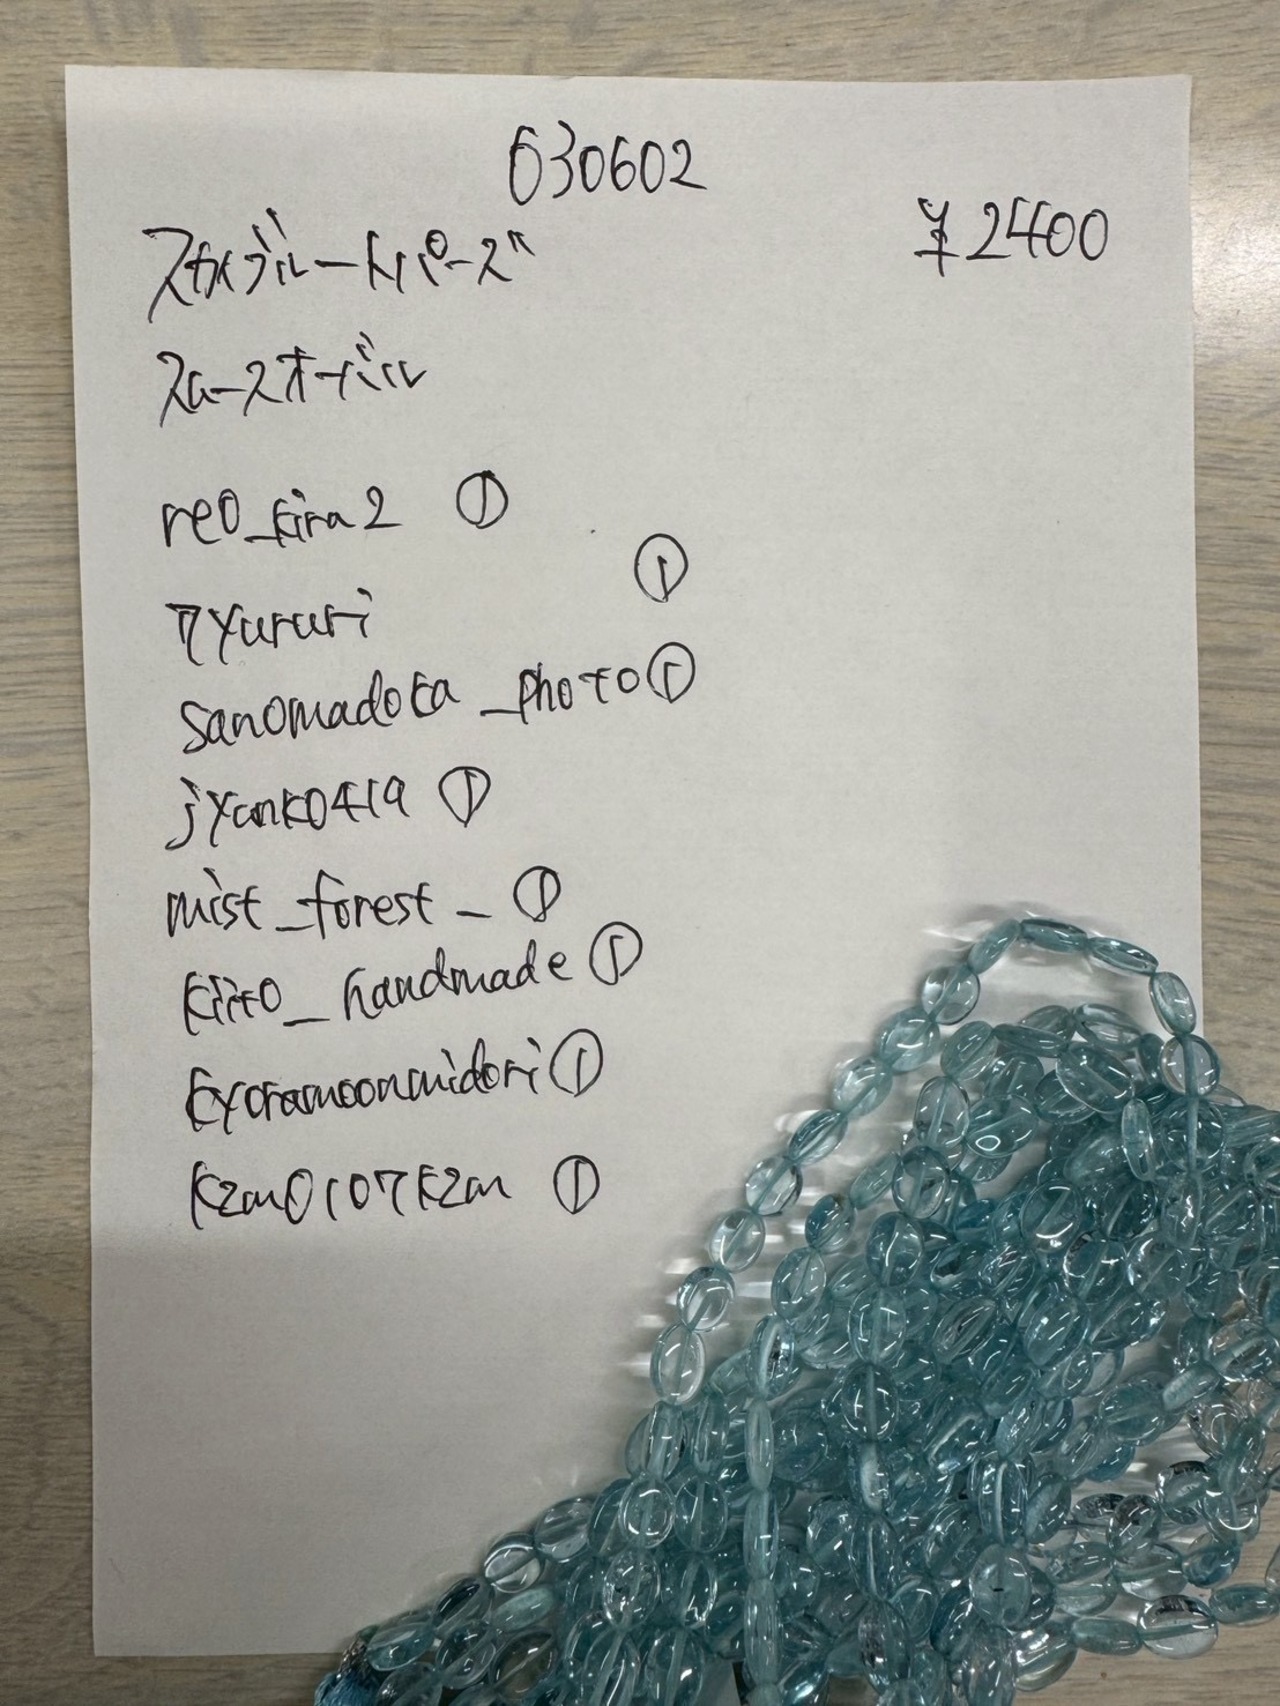 030602
¥2400
スカイブルートパーズ
スムースオーバル
reo_kira2 ①
77yururi ①
sanomadoka_photo ①
jyanko419 ①
mist_forest_ ①
kiito_handmade ①
kyoramoonmidori ①
kzm0107kzm ①